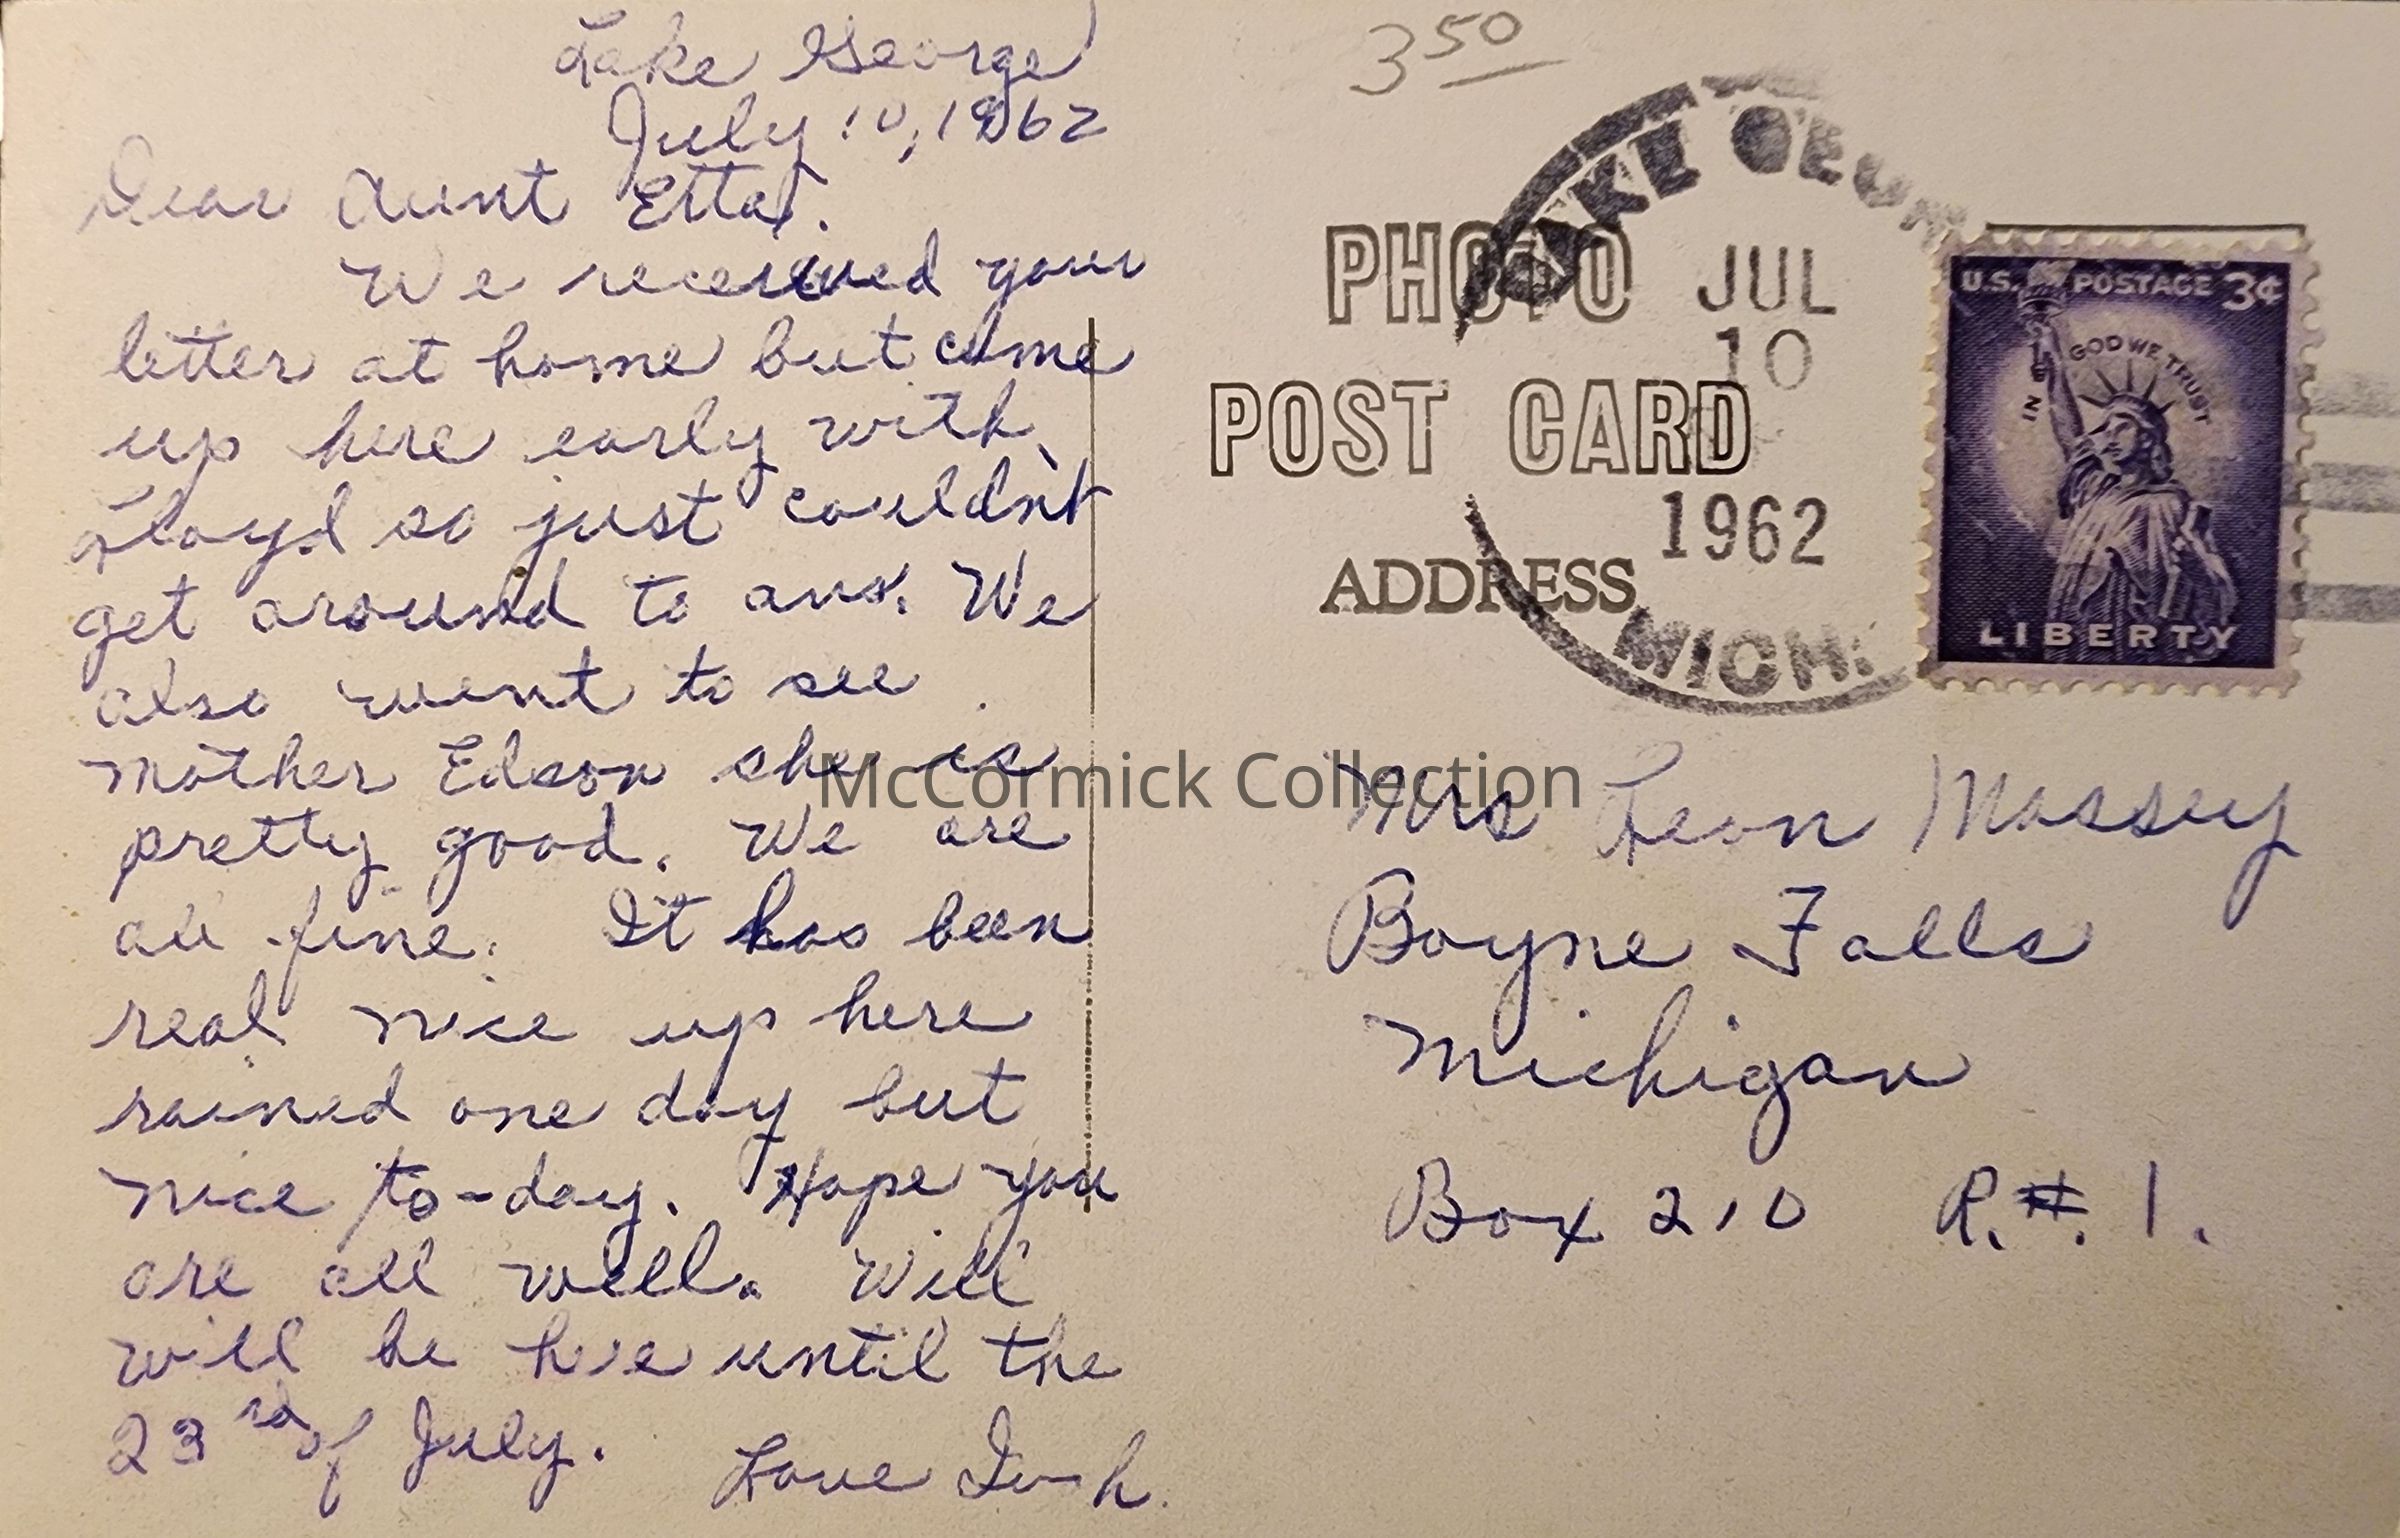 Lake George
July 10, 1962
Dear Aunt Etta.
We received your
letter at home but came
up here early with
Floyd so just couldn't
get around to ans. We
also went to see
Mother Edson she is
pretty good. We are
all fine. It has been
real nice up here
rained one day but
nice to-day. Hope you
are all well. Will
will be here until the
23rd of July.
Love
3 50
LAKE GEOR
JUL
10
1962
MICH.
PHOTO
POST CARD
ADDRESS
U.S. POSTAGE 3¢
IN GOD WE TRUST
LIBERTY
Mrs Leon Massey
Boyne Falls
Michigan
Box 210 R.#.1.
McCormick Collection